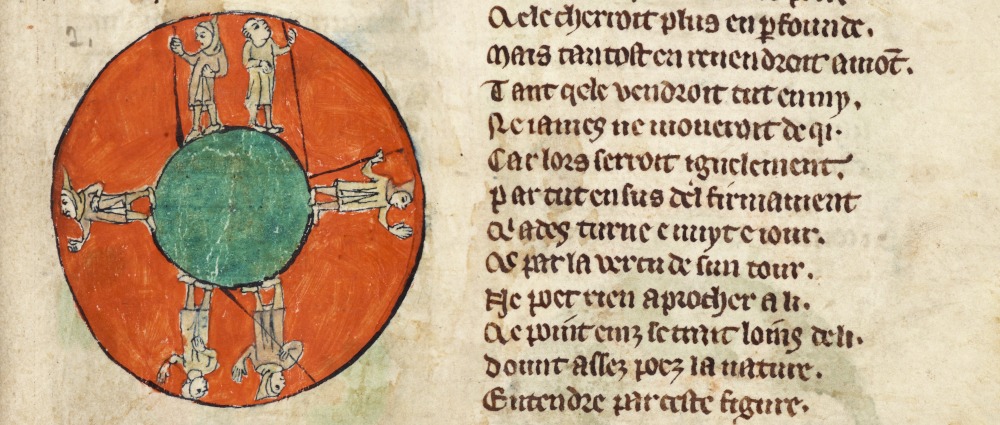 2.
Qele cherroit plus en pfounde.
Mais tantost en reuendroit amōt.
Tant qele vendroit tut enmy.
Ne iames ne moueroit de qi.
Car lors serroit ignelement.
Par tut ensus del firmament
Qi ades turne e nuyt e iour.
Qe par la vertu de sun tour.
Ne poet rien aprocher a li.
Qe point einz se trait loins de li.
Dount assez poez la nature.
Entendre par ceste figure.